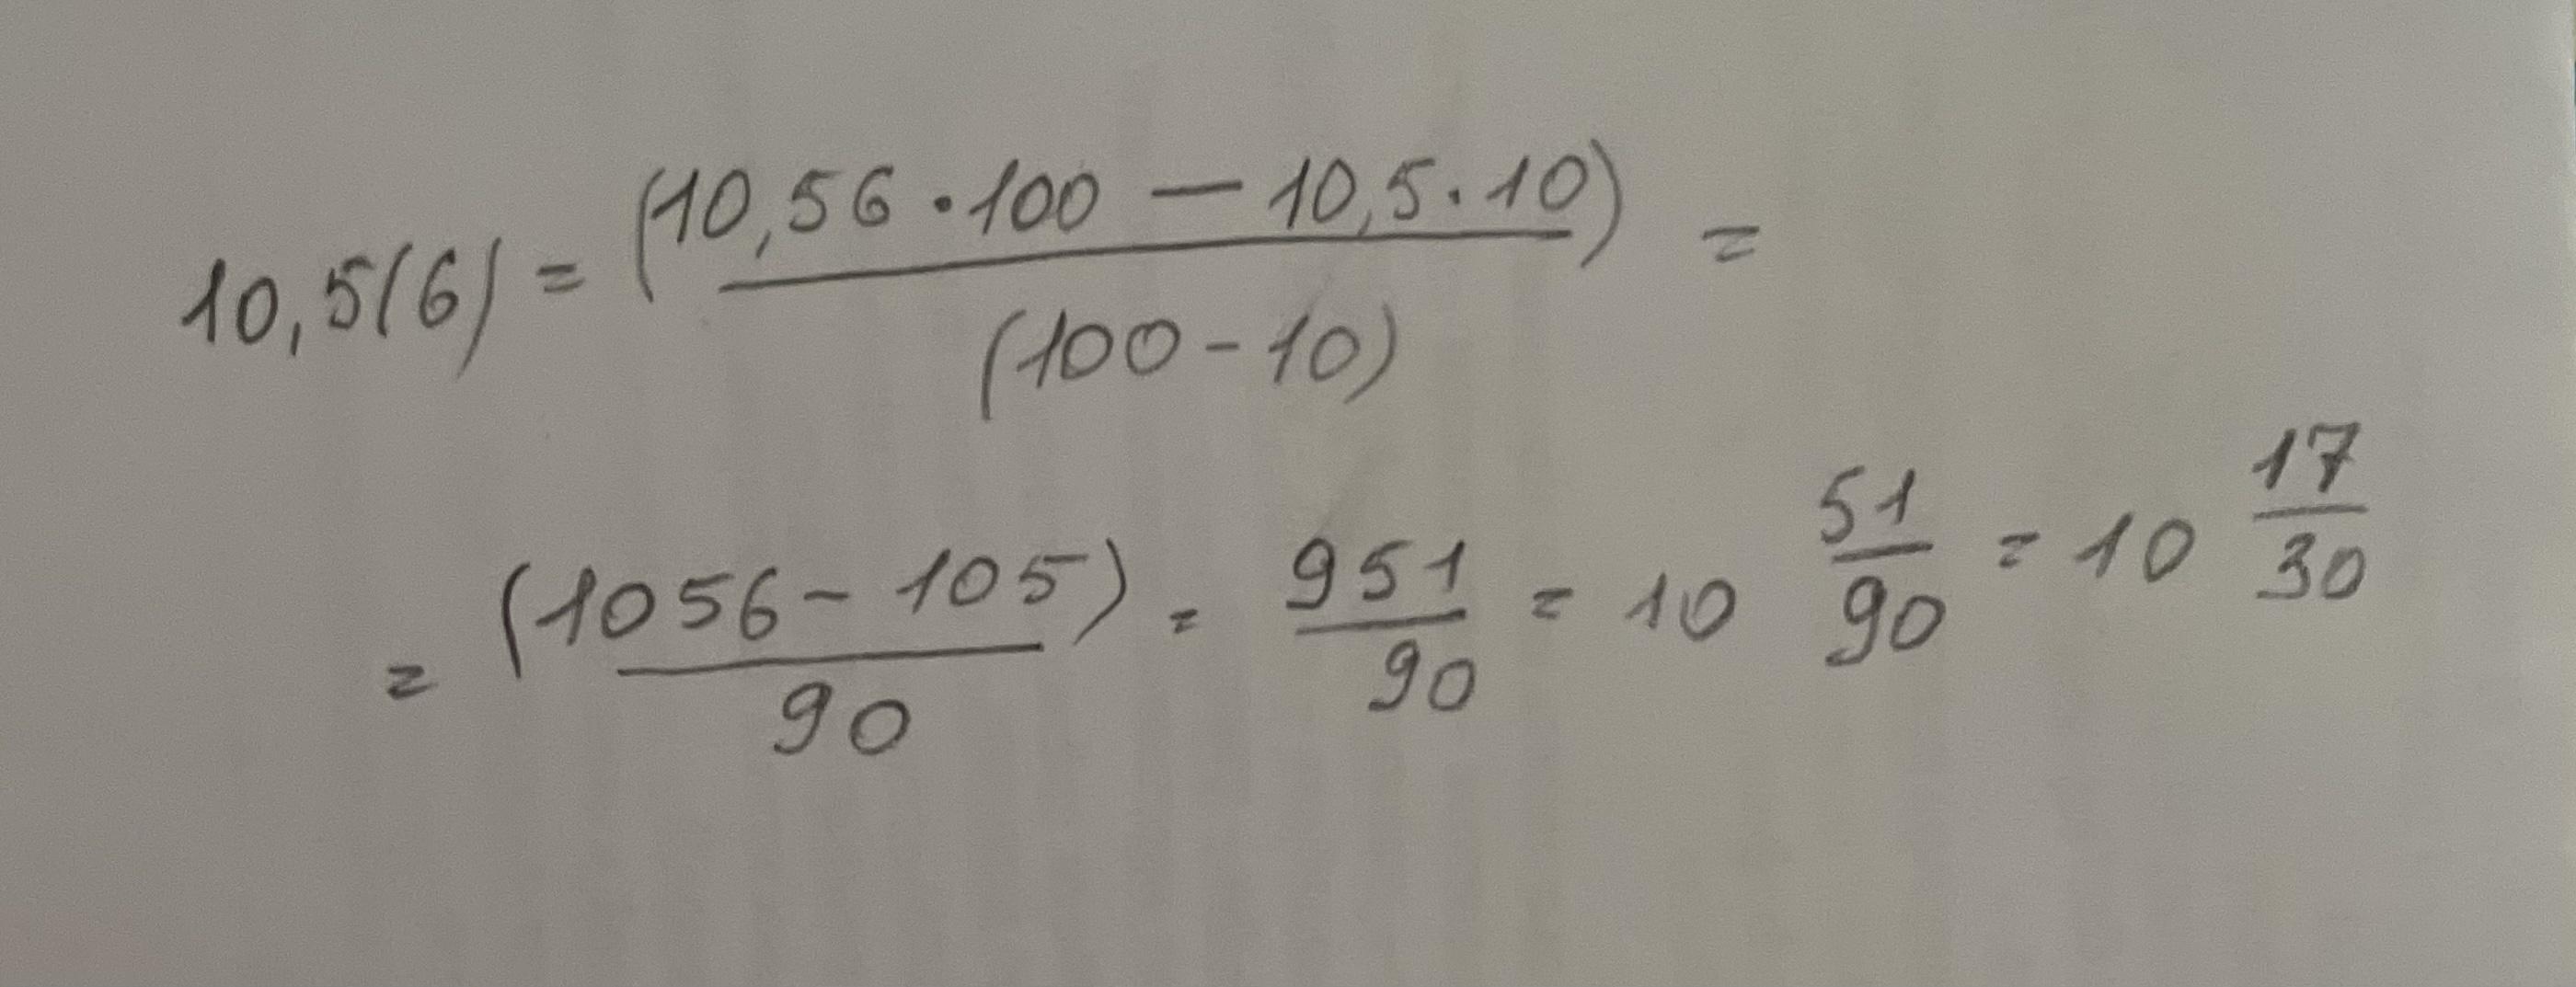 10,5(6) = (10,56 · 100 — 10,5 · 10) / (100 - 10) =
= (1056 - 105) / 90 = 951/90 = 10 51/90 = 10 17/30